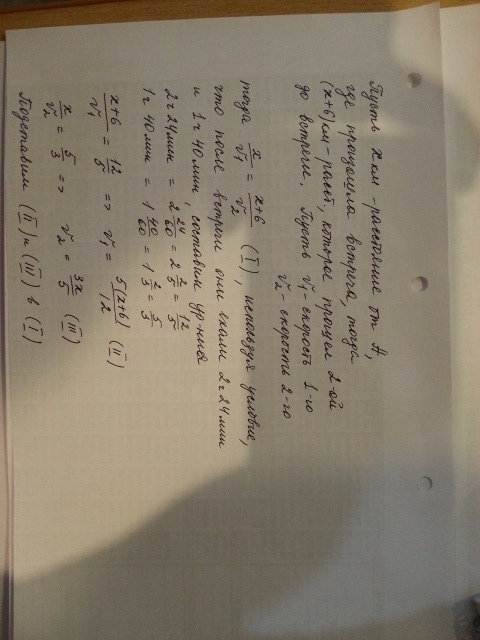 Пусть x км - расстояние от А,
где произошла встреча, тогда
(x+6) км - расст, которое прошел 2-ой
до встречи. Пусть v₁ - скорость 1-го
v₂ - скорость 2-го
тогда x/v₁ = (x+6)/v₂ (I), используя условие,
что после встречи они ехали 2ч 24 мин
и 1ч 40 мин, составим ур-ния
2ч 24мин = 2 24/60 = 2 2/5 = 12/5
1ч 40мин = 1 40/60 = 1 2/3 = 5/3
(x+6)/v₁ = 12/5 => v₁ = 5(x+6)/12 (II)
x/v₂ = 5/3 => v₂ = 3x/5 (III)
Подставим (II) и (III) в (I)